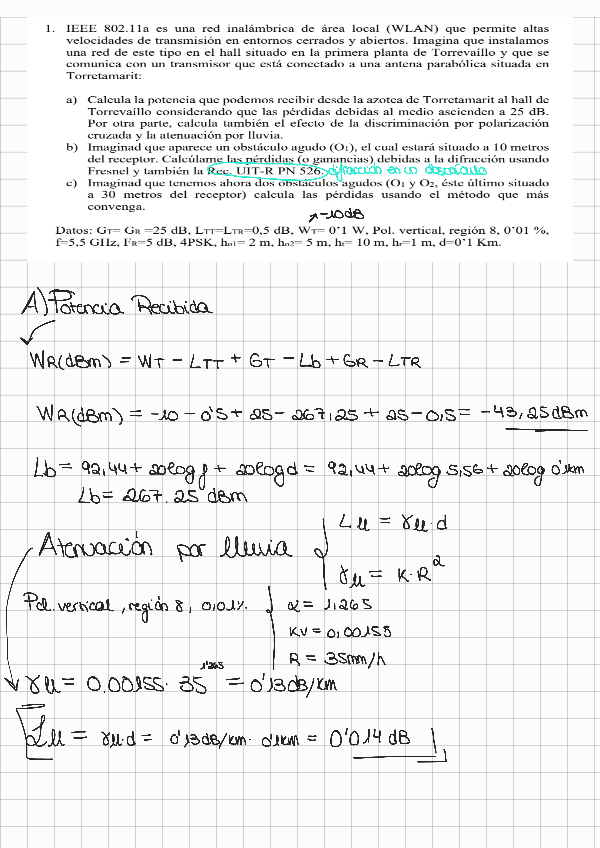 1. IEEE 802.11a es una red inalámbrica de área local (WLAN) que permite altas
velocidades de transmisión en entornos cerrados y abiertos. Imagina que instalamos
una red de este tipo en el hall situado en la primera planta de Torrevaíllo y que se
comunica con un transmisor que está conectado a una antena parabólica situada en
Torretamarit:
a) Calcula la potencia que podemos recibir desde la azotea de Torretamarit al hall de
Torrevaíllo considerando que las pérdidas debidas al medio ascienden a 25 dB.
Por otra parte, calcula también el efecto de la discriminación por polarización
cruzada y la atenuación por lluvia.
b) Imaginad que aparece un obstáculo agudo (O1), el cual estará situado a 10 metros
del receptor. Calcúlame las pérdidas (o ganancias) debidas a la difracción usando
Fresnel y también la Rec. UIT-R PN 526. difracción en un obstáculo
c) Imaginad que tenemos ahora dos obstáculos agudos (O1 y O2, éste último situado
a 30 metros del receptor) calcula las pérdidas usando el método que más
convenga.
-10dB
Datos: GT= GR =25 dB, LTT=LTR=0,5 dB, WT= 0'1 W, Pol. vertical, región 8, 0'01 %,
f=5,5 GHz, FR=5 dB, 4PSK, ho1= 2 m, ho2= 5 m, ht= 10 m, hr=1 m, d=0'1 Km.
A) Potencia Recibida
WR(dBm) = WT - LTT + GT - Lb + GR - LTR
WR(dBm) = -10 - 0'5 + 25 - 267,25 + 25 - 0,5 = -43,25dBm
Lb = 92,44 + 20log f + 20logd = 92,44 + 20log 5,56 + 20log 0'1km
Lb = 267.25 dBm
Atenuación por lluvia { Lll = γll·d
γll = K·R^α
Pol. vertical, región 8, 0,01%. { α = 1,265
Kv = 0,00155
R = 35mm/h
γll = 0.00155 · 35^1'265 = 0'13dB/km
Lll = γll·d = 0'13dB/km · 0'1km = 0'014 dB